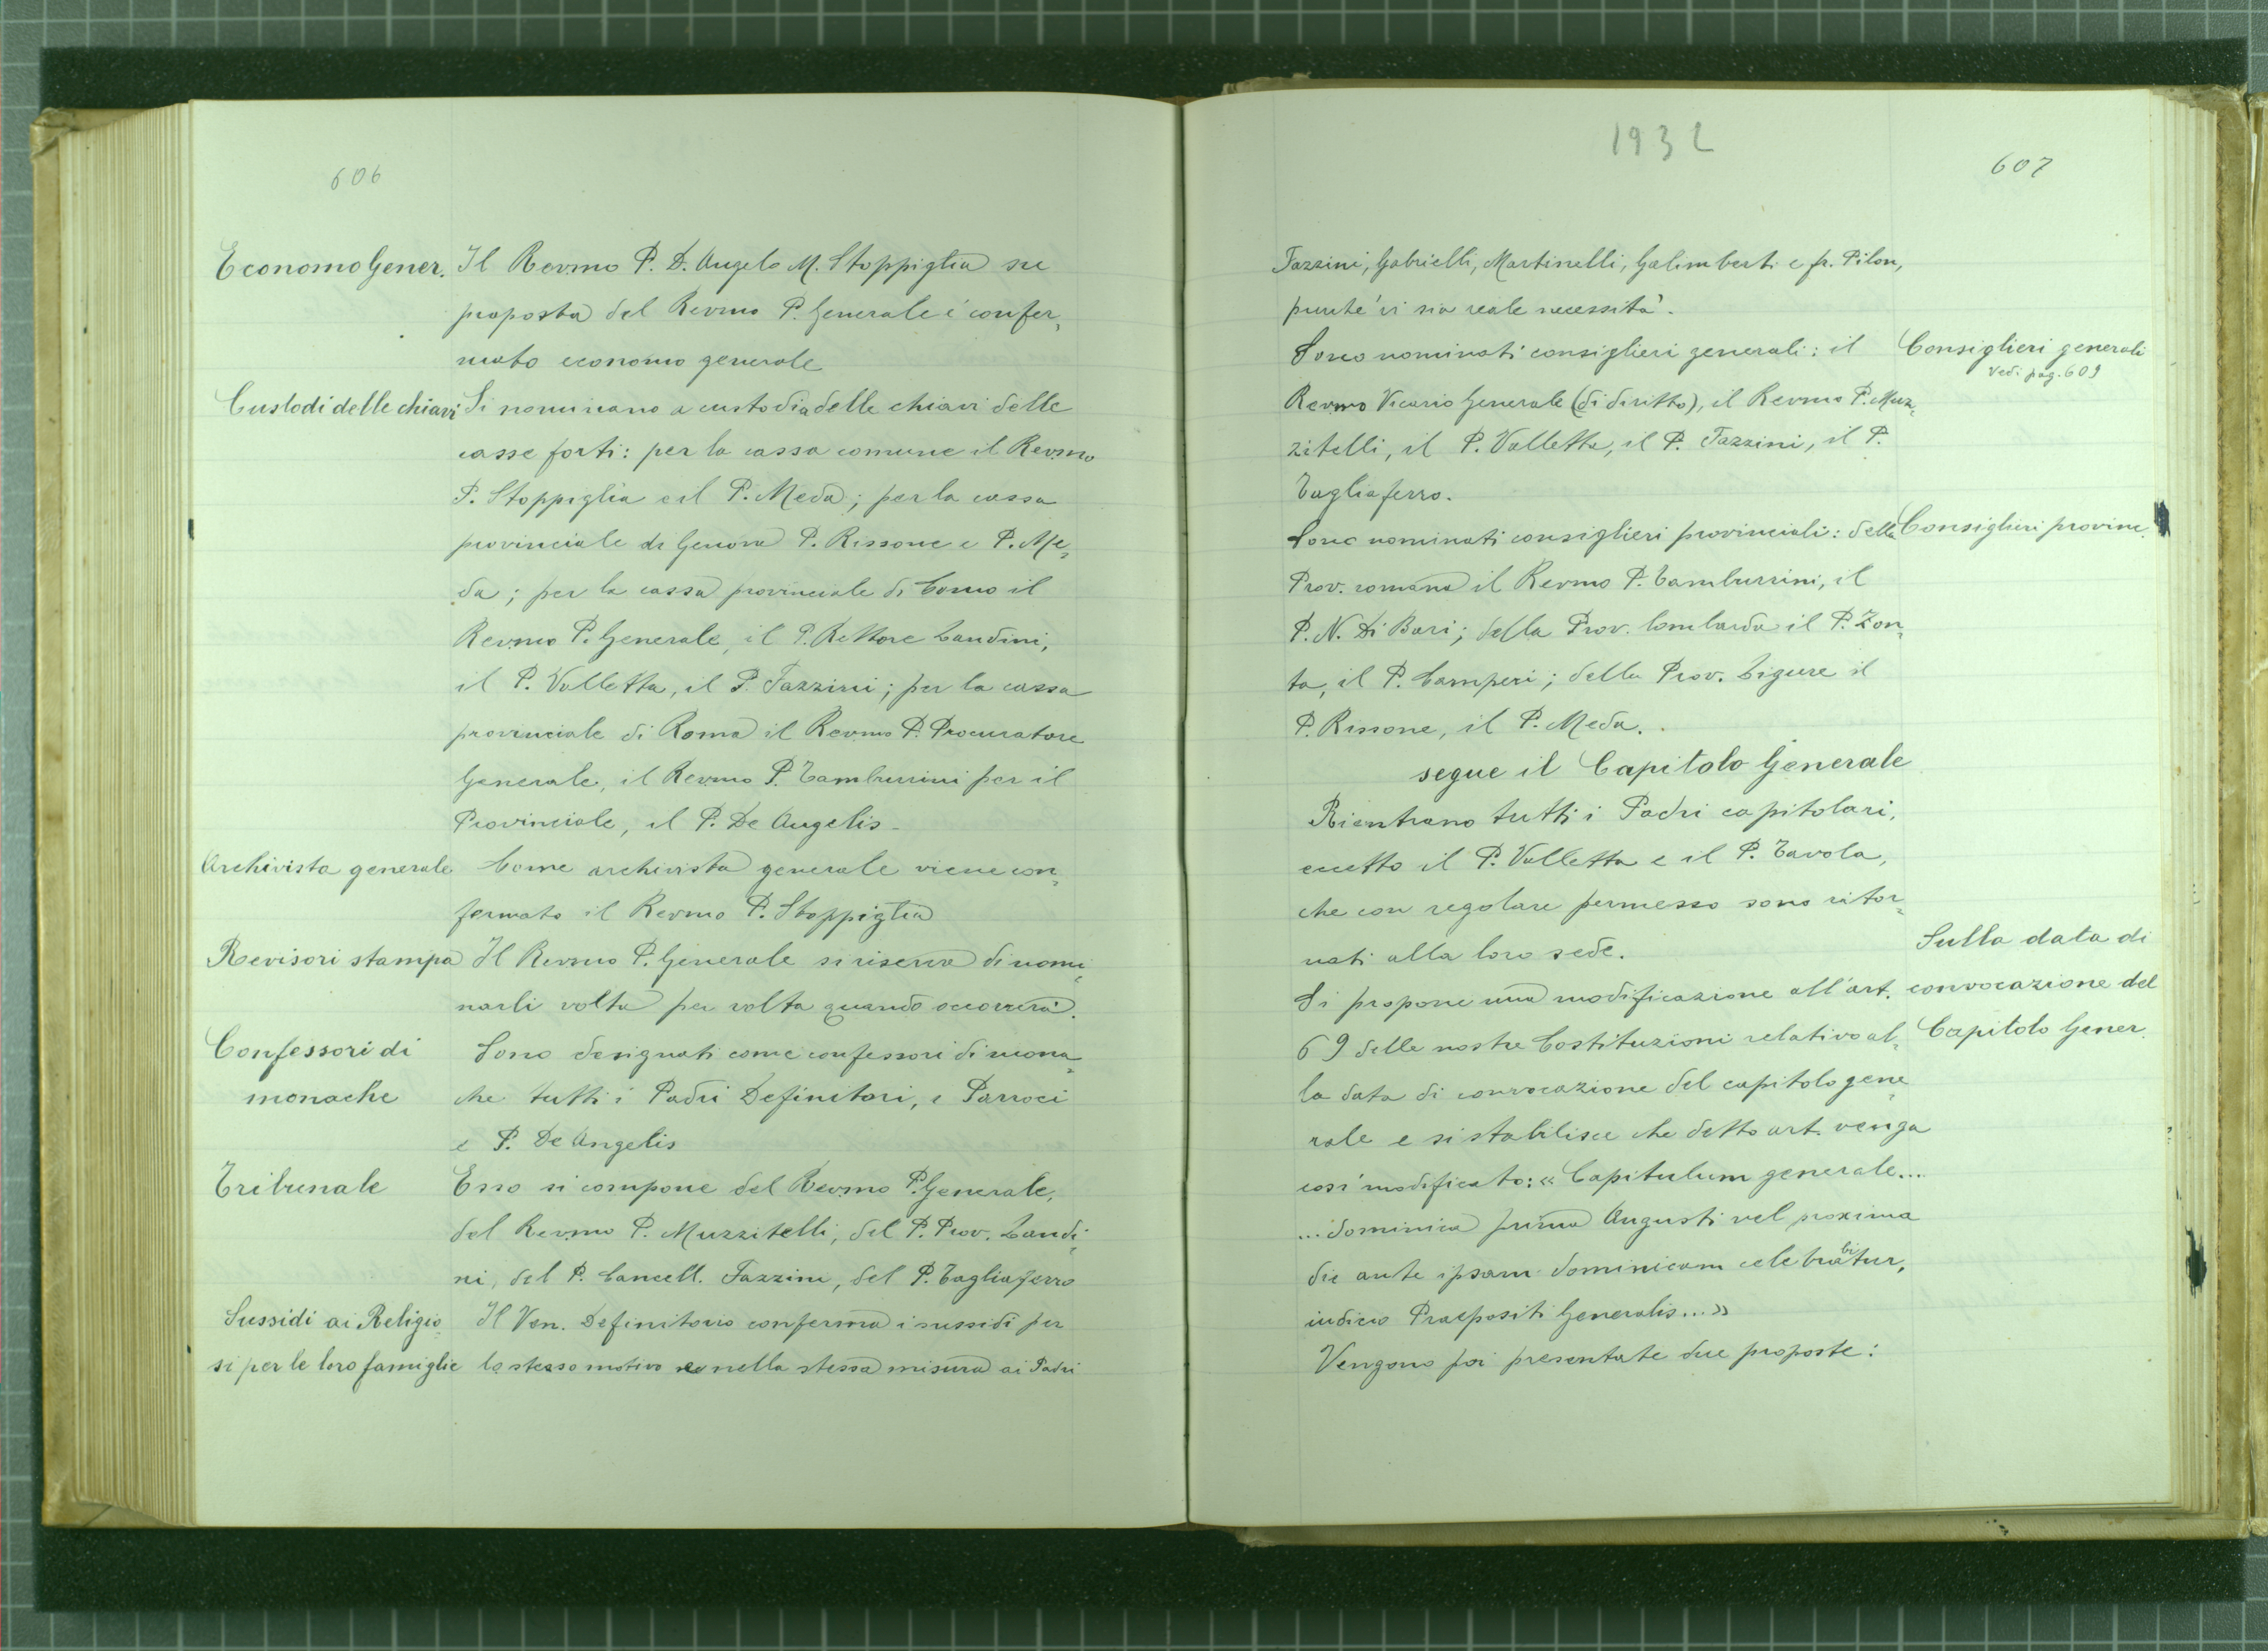 606
Economo Gener. Il Revmo P. D. Angelo M. Stoppiglia su
proposta del Revmo P. Generale è confer=
mato economo generale
Custodi delle chiavi Si nominano a custodia delle chiavi delle
casse forti: per la cassa comune il Revmo
P. Stoppiglia e il P. Meda; per la cassa
provinciale di Genova P. Rissone e P. Me=
da; per la cassa provinciale di Como il
Revmo P. Generale, il P. Rettore Landini,
il P. Valletta, il P. Fazzini; per la cassa
provinciale di Roma il Revmo P. Procuratore
Generale, il Revmo P. Tamburrini per il
Provinciale, il P. De Angelis.
Archivista generale Come archivista generale viene con=
fermato il Revmo P. Stoppiglia
Revisori stampa Il Revmo P. Generale si riserva di nomi=
narli volta per volta quando occorrerà.
Confessori di Sono designati come confessori di mona=
monache che tutti i Padri Definitori, i Parroci
e P. De Angelis
Tribunale Esso si compone del Revmo P. Generale,
del Revmo P. Muzzitelli, del P. Prov. Landi=
ni, del P. Cancell. Fazzini, del P. Tagliaferro
Sussidi ai Religio= Il Ven. Definitorio conferma i sussidi per
si per le loro famiglie lo stesso motivo e nella stessa misura ai Padri
1932
607
Fazzini, Gabrielli, Martinelli, Galimberti e fr. Pilon,
purché vi sia reale necessità.
Sono nominati consiglieri generali: il Consiglieri generali
Vedi pag. 609
Revmo Vicario Generale (di diritto), il Revmo P. Muz=
zitelli, il P. Valletta, il P. Fazzini, il P.
Tagliaferro.
Sono nominati consiglieri provinciali: della Consiglieri provinc.
Prov. romana il Revmo P. Tamburrini, il
P. N. Di Bari; della Prov. lombarda il P. Zon=
ta, il P. Camperi; della Prov. Ligure il
P. Rissone, il P. Meda.
segue il Capitolo Generale
Rientrano tutti i Padri capitolari,
eccetto il P. Valletta e il P. Tavola,
che con regolare permesso sono ritor=
nati alla loro sede. Sulla data di
Si propone una modificazione all'art. convocazione del
69 delle nostre Costituzioni relativo al= Capitolo Gener.
la data di convocazione del capitolo gene=
rale e si stabilisce che detto art. venga
così modificato: « Capitulum generale...
... dominica prima Augusti vel proxima
die ante ipsam dominicam celebrabitur,
iudicio Praepositi Generalis... »
Vengono poi presentate due proposte: